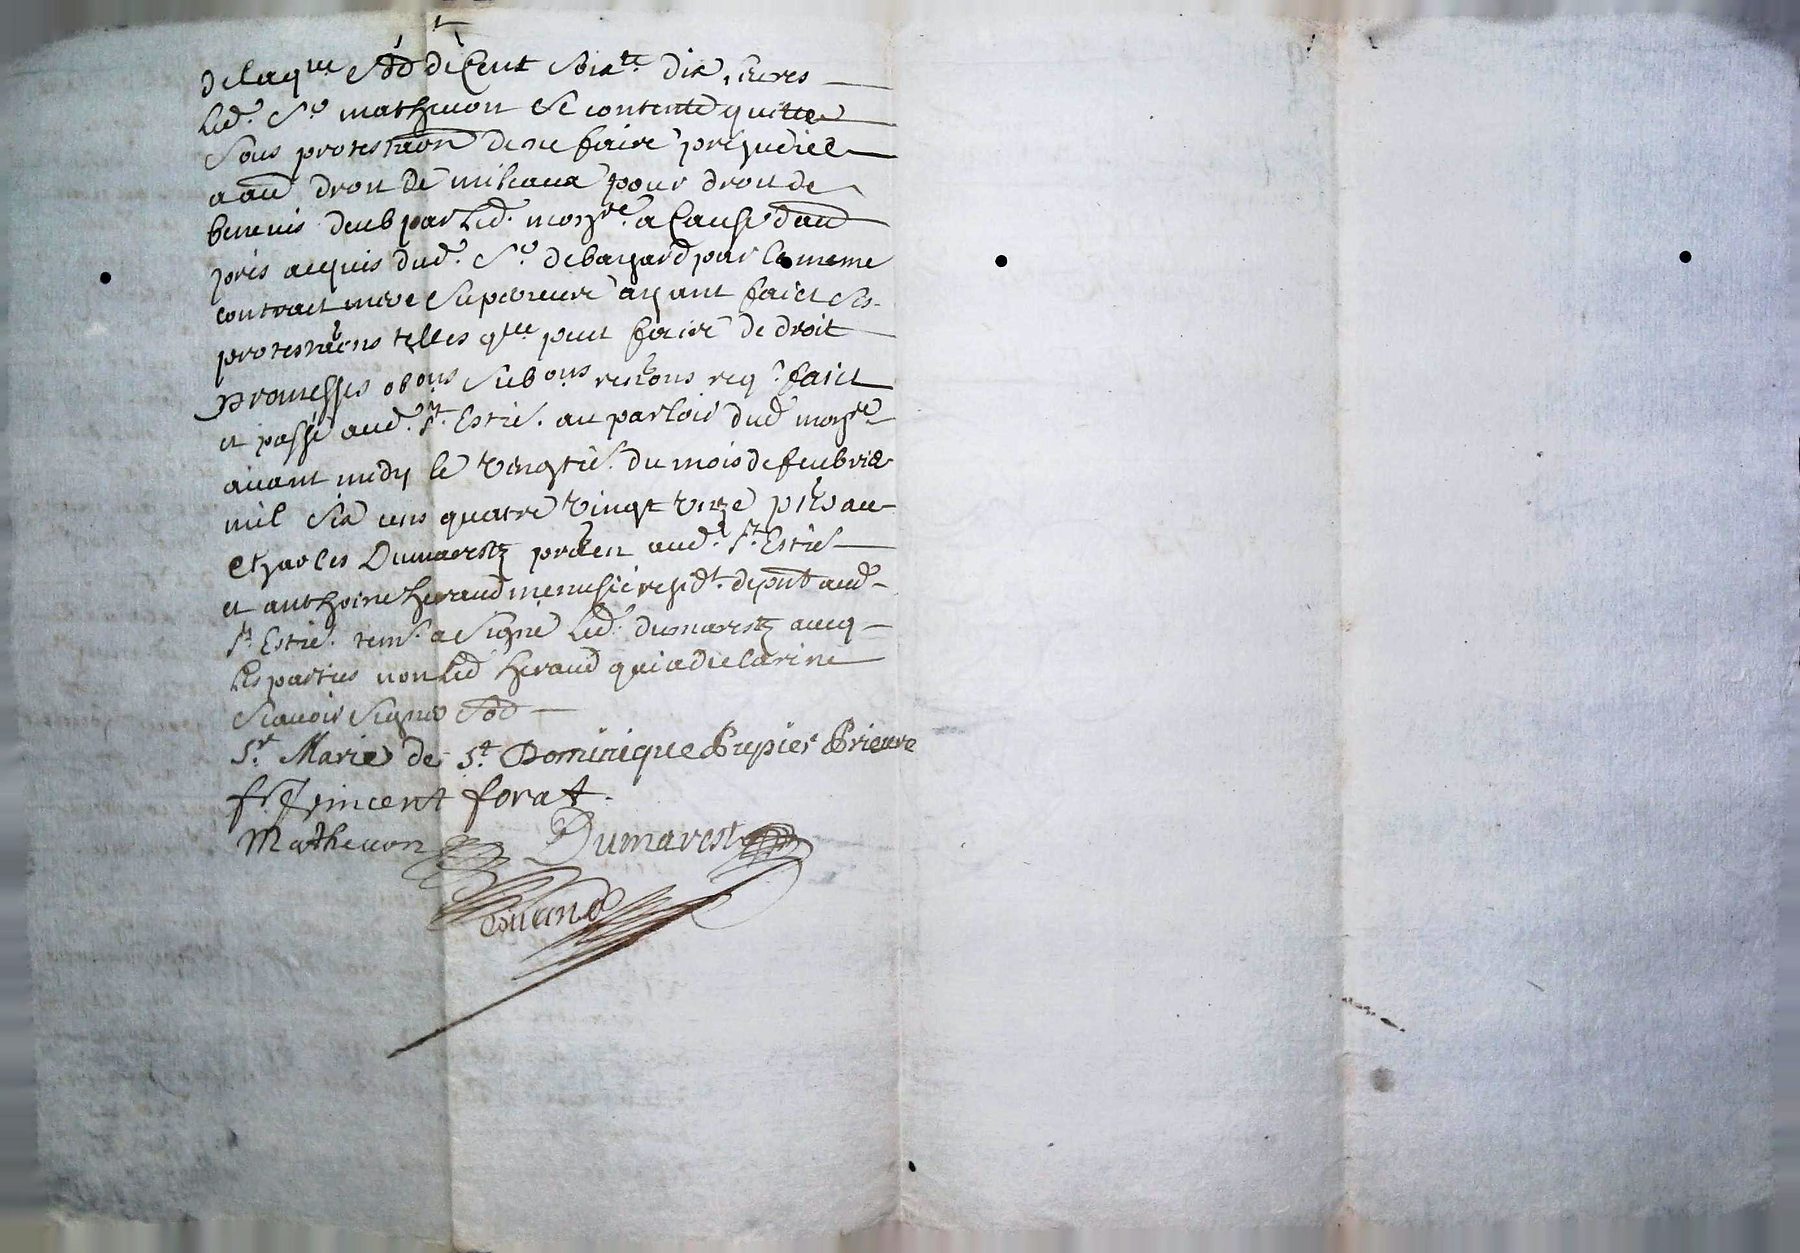 de laq.lle S. de Cent Soix.te dix livres
led. S.r mathevon se contente quitte
Sous protestaôn de ne faire prejudice
a au droit de milieaux pour droit de
benevis deub par led. mon.re a Cause dau
prés acquis dud. S.r de bayard par le meme
contrait mere Superieure ayant faict Ses
protestaôns telles q.lle peut faire de droit
promesses obôns Submons renôns req. faict
et passé aud. S.t Estie. au parloir dud mon.re
avant midy le vingtie. du mois de feubrier
mil Six cens quatre vingt unze pnts au
Charles Dumarestz praen aud. S.t Estie
et anthoine heraud menusier resid.t depnt aud
S.t Estie. tem. a Signé led. dumarestz avecq
les parties non led heraud qui a declaré ne
Scavoir Signer
S.r Marie de S.t Dominique Pupier Prieure
f.r Vincent forat.
Mathevon Dumarest